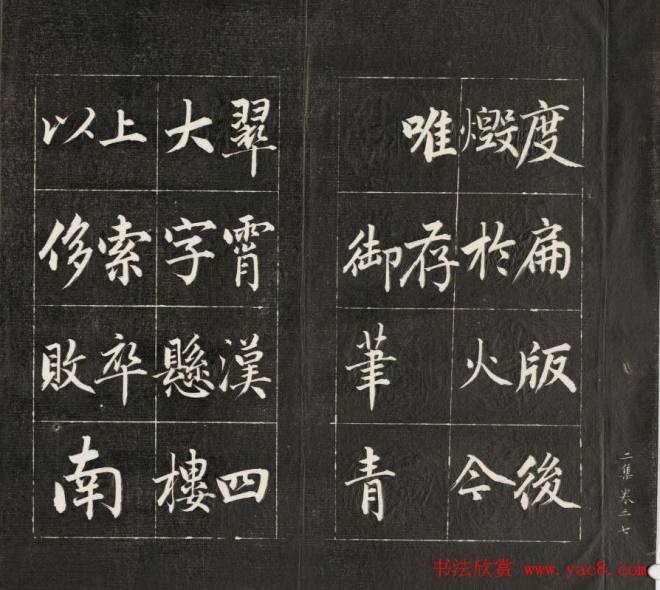 二集 卷二 七
度扁版後
燬於火今
唯存
御筆青
翠霄漢四
大字懸樓
上索卒
以侈敗南
书法欣赏 www.yac8.com